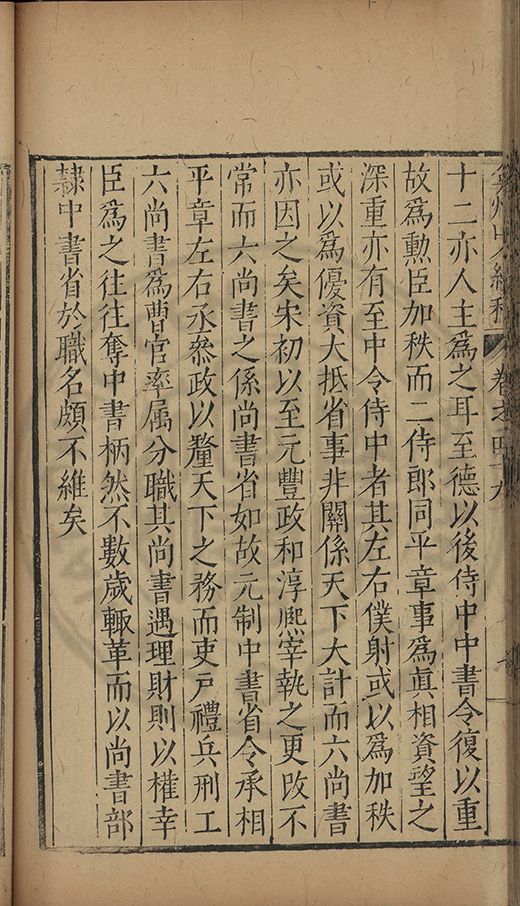 弇州史料卷之四十九
十二亦人主爲之耳至德以後侍中中書令復以重
故爲勳臣加秩而二侍郎同平章事爲眞相資望之
深重亦有至中令侍中者其左右僕射或以爲加秩
或以爲優資大抵省事非關係天下大計而六尚書
亦因之矣宋初以至元豐政和淳熈宰執之更改不
常而六尚書之係尚書省如故元制中書省令丞相
平章左右丞叅政以釐天下之務而吏戶禮兵刑工
六尚書爲曹官率属分職其尚書遇理財則以權幸
臣爲之往往奪中書柄然不數歲輙革而以尚書部
隷中書省於職名頗不維矣